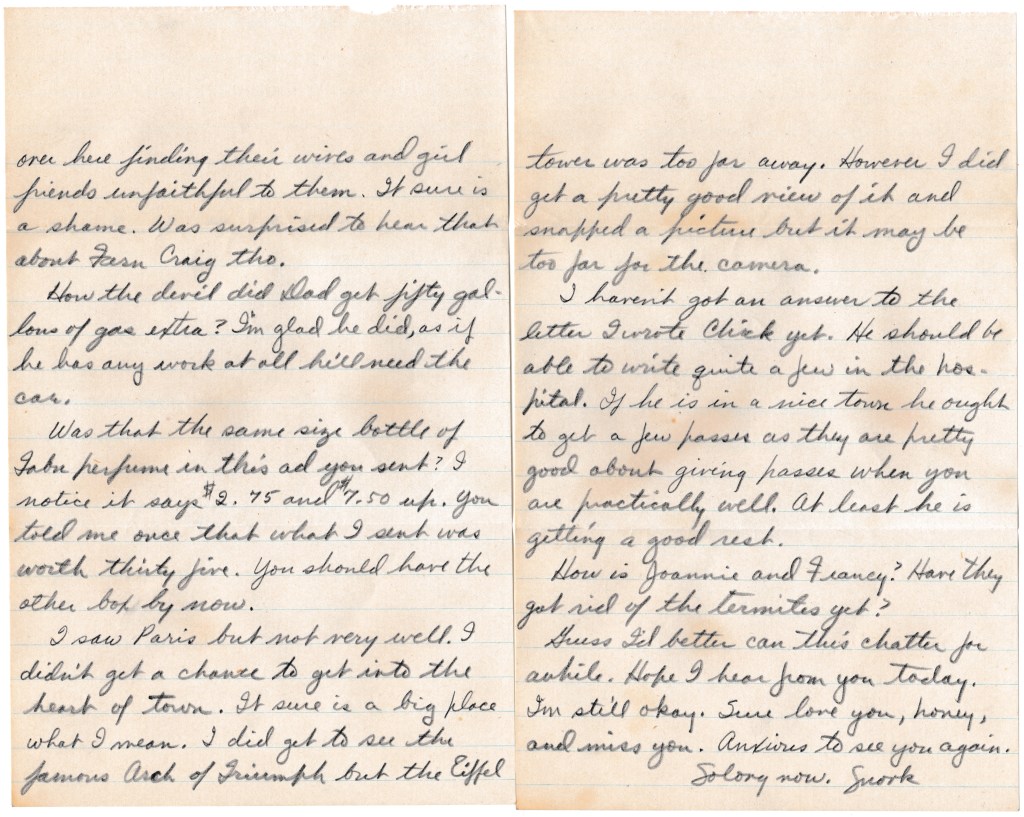 over here finding their wives and girl
friends unfaithful to them. It sure is
a shame. Was surprised to hear that
about Fern Craig tho.
How the devil did Dad get fifty gal-
lons of gas extra? I'm glad he did, as if
he has any work at all he'll need the
car.
Was that the same size bottle of
Tabu perfume in this ad you sent? I
notice it says $2.75 and $7.50 up. You
told me once that what I sent was
worth thirty five. You should have the
other box by now.
I saw Paris but not very well. I
didn't get a chance to get into the
heart of town. It sure is a big place
what I mean. I did get to see the
famous Arch of Triumph but the Eiffel
tower was too far away. However I did
get a pretty good view of it and
snapped a picture but it may be
too far for the camera.
I haven't got an answer to the
letter I wrote Chick yet. He should be
able to write quite a few in the hos-
pital. If he is in a nice town he ought
to get a few passes as they are pretty
good about giving passes when you
are practically well. At least he is
getting a good rest.
How is Joannie and Francy? Have they
got rid of the termites yet?
Guess I'd better can this chatter for
awhile. Hope I hear from you today.
I'm still okay. Sure love you, honey,
and miss you. Anxious to see you again.
Solong now. Snork